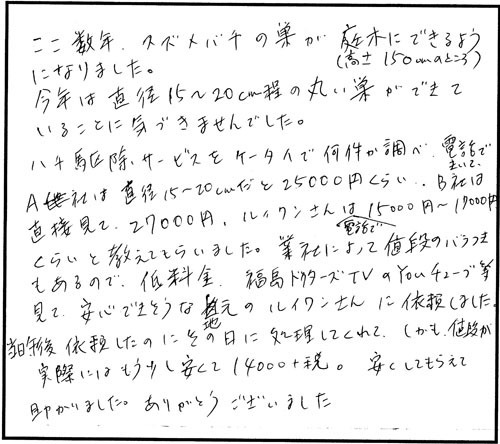 ここ数年、スズメバチの巣が庭木にできるよう
になりました。(高さ150cmのところ)
今年は直径15〜20cm程の丸い巣ができて
いることに気づきませんでした。
ハチ駆除サービスをケータイで何件か調べ、電話で
きいて、
A社は直径15〜20cmだと25000円くらい、B社は
直接見て、27000円、ルイワンさんは15000円〜17000円
電話で
くらいと教えてもらいました。業社によって値段のバラつき
もあるので、低料金、福島ドクターズTVのYouチューブ等
見て、安心できそうな地元のルイワンさんに依頼しました。
当日午後依頼したのにその日に処理してくれて、しかも、値段が
実際にはもう少し安くて14000+税。安くしてもらえて
助かりました。ありがとうございました